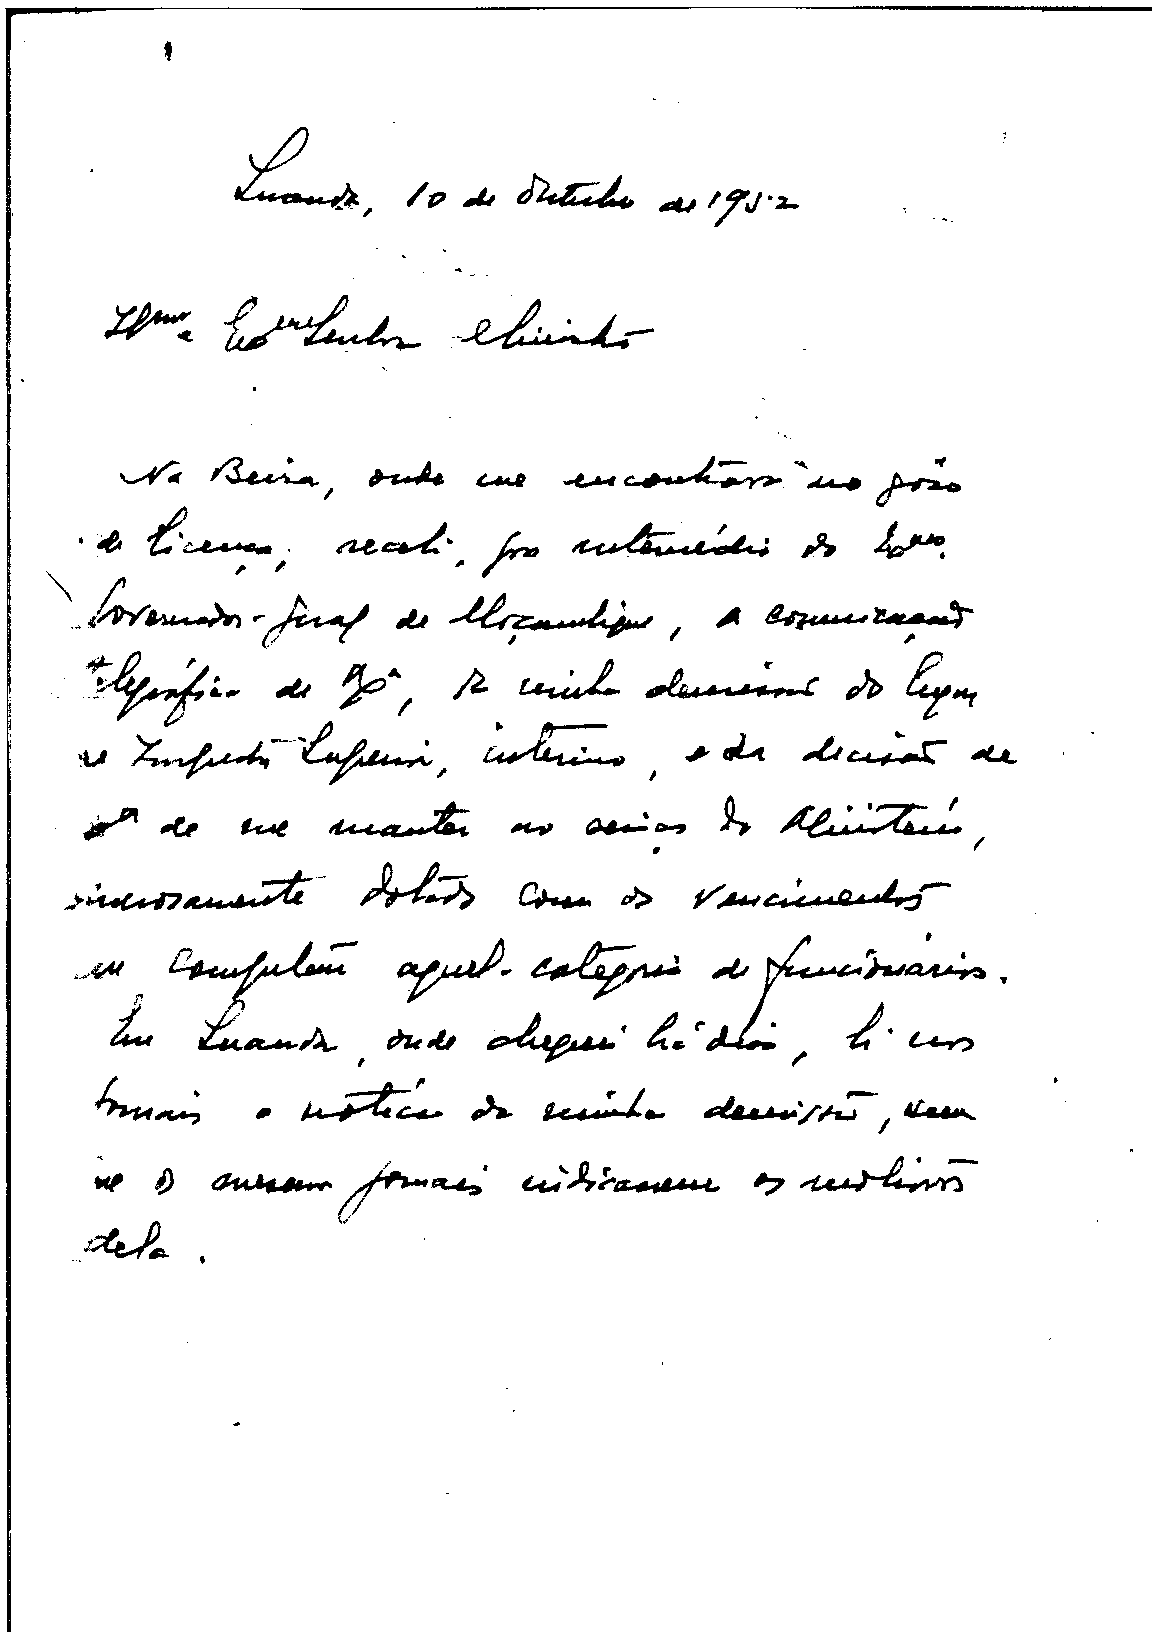 Luanda, 10 de Outubro de 1952
Ilmo e Exmo Senhor Ministro
Na Beira, onde me encontrava no gôso
de licença, recebi, por intermédio do Exmo.
Governador-Geral de Moçambique, a comunicação
telegráfica de V. Exa, da minha demissão do lugar
de Inspector Superior, interino, e da decisão de
de me manter ao serviço do Ministério,
generosamente dotado com os vencimentos
que competem aquela categoria de funcionários.
Em Luanda, onde cheguei há dias, li nos
Jornais a notícia da minha demissão, sem
que os mesmos jornais indicassem os motivos
dela.